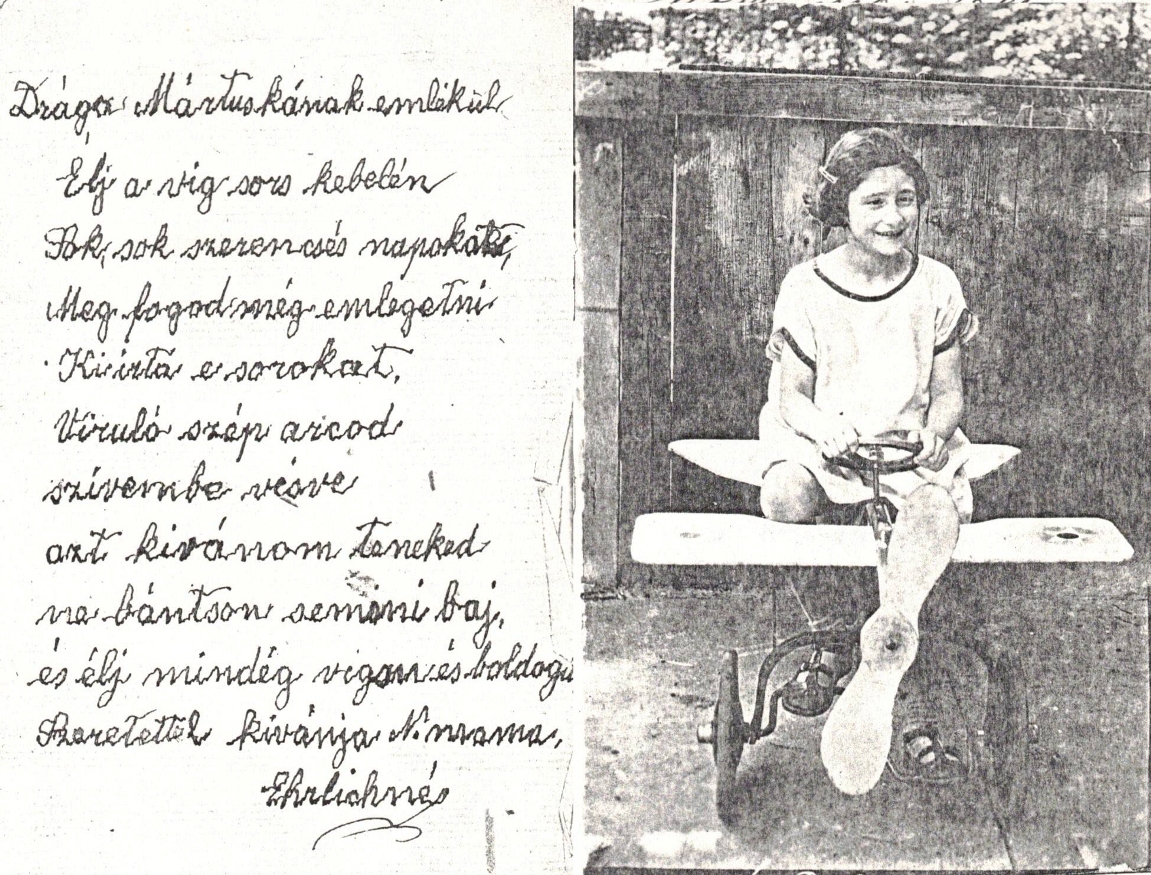 Drága Mártuskának emlékül
Élj a vig sors kebelén
Sok, sok szerencsés napokat,
Meg fogod még emlegetni
Ki irta e sorokat.
Viruló szép arcod
szívembe vésve
azt kivánom teneked
ne bántson semmi baj,
és élj mindég vigan és boldogu
Szeretettel kivánja N. mama,
Ehrlichné